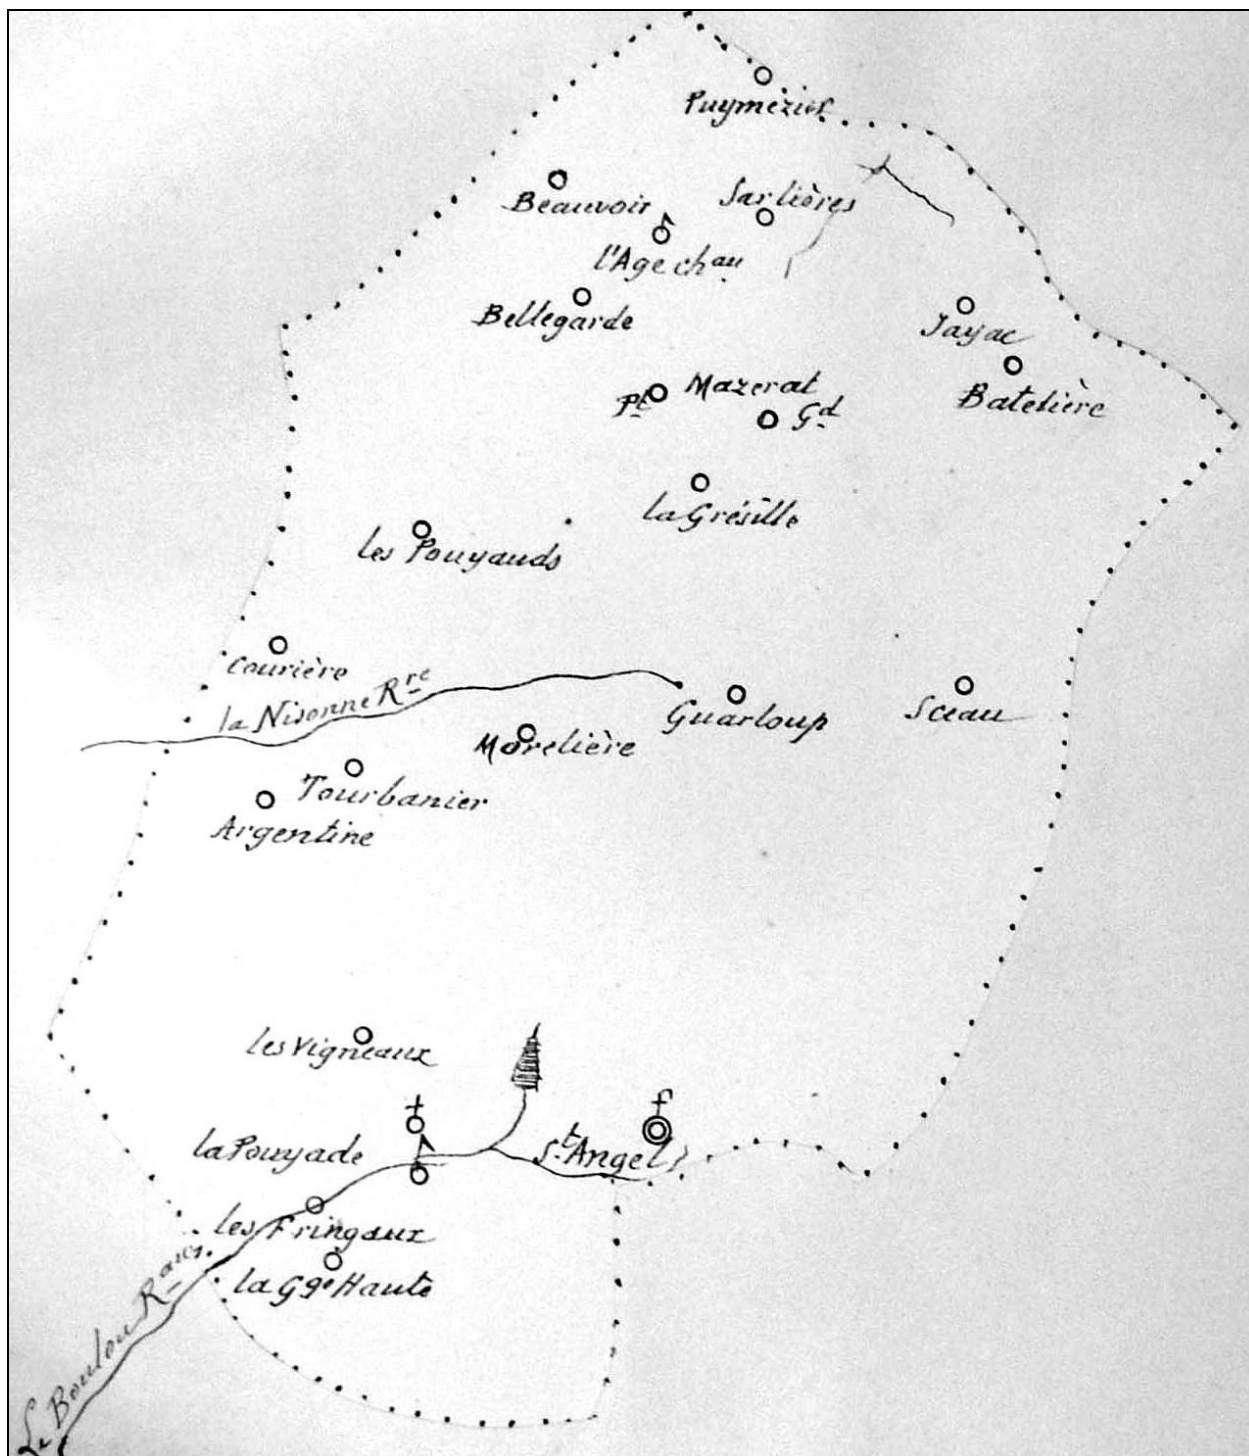 Puymézier
Beauvoir
Sarlières
l'Age chau
Bellegarde
Jayac
Mazerat
Pt
Gd
Batelière
la Grésille
les Pouyauds
Courière
la Nisonne Rre
Guarloup
Sceau
Morelière
Tourbanier
Argentine
les Vigneaux
la Pouyade
St Angel
les Fringaux
la Gge Haute
Le Boulou